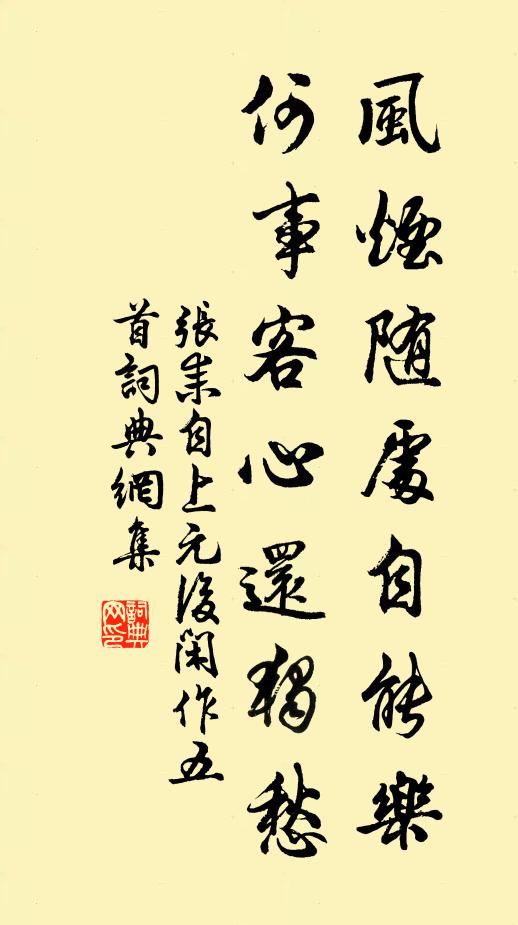 風煙随處自能樂
何事客心還獨愁
張耒自上元後閑作五
首詞典網集
詞典
网印